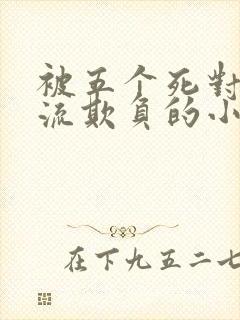 被五个死對
流欺負的小
在下九五二七